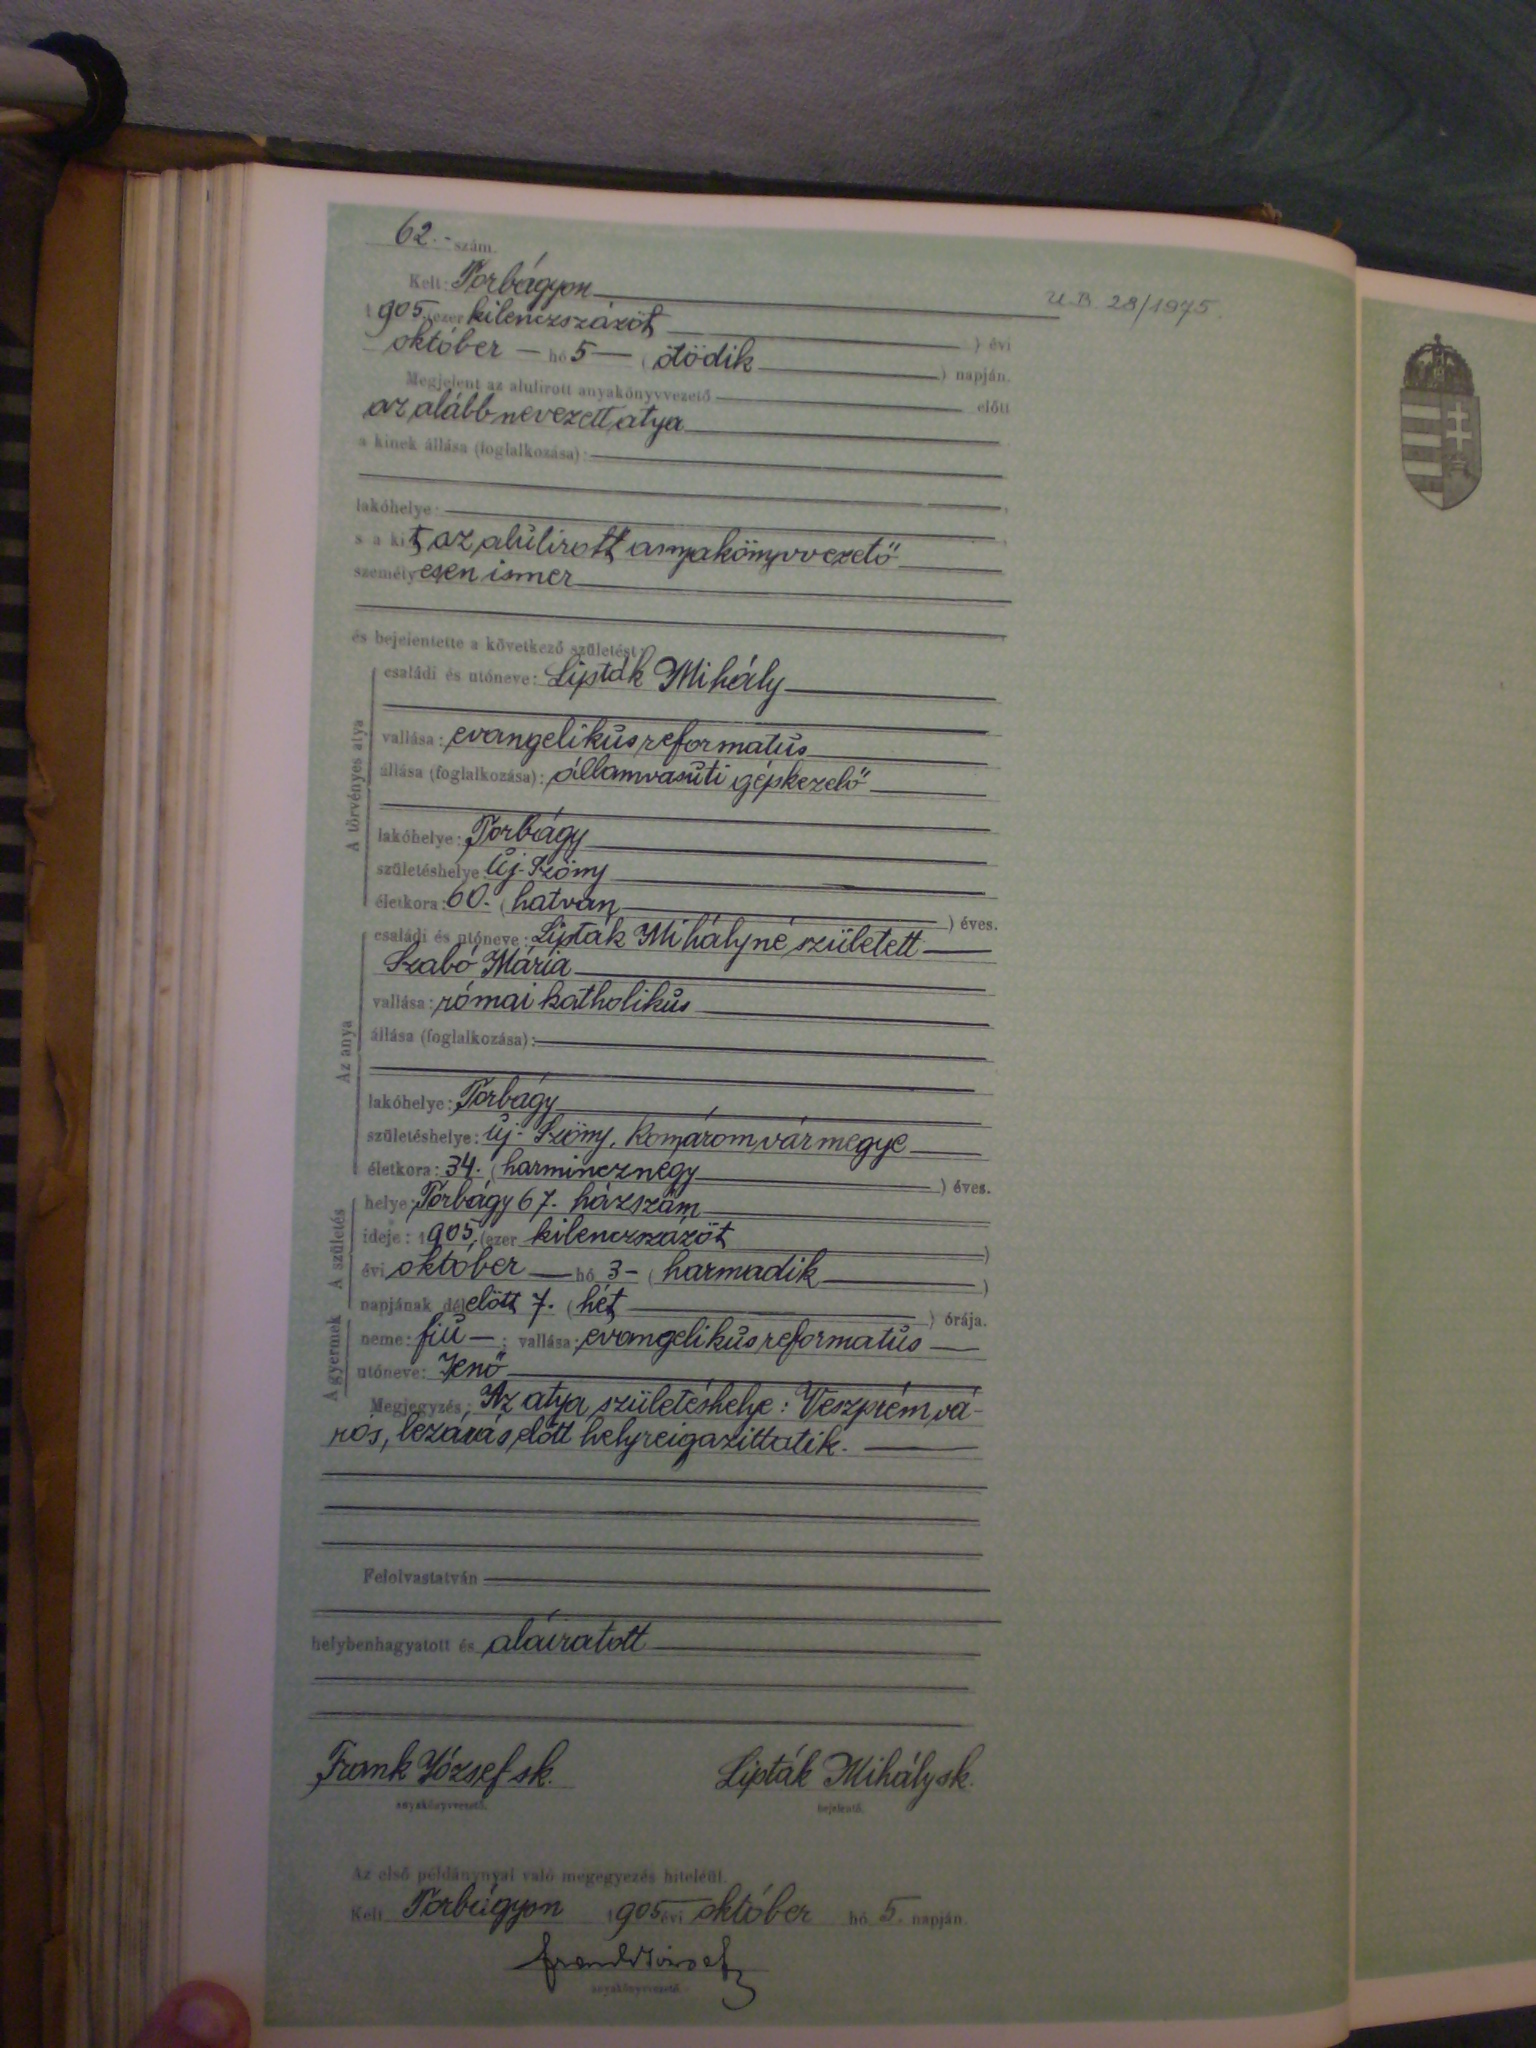 62.- szám.
Kelt: Torbágyon
U.B. 28/1975.
1905. (ezer kilenczszázöt ) évi
október — hó 5 — ( ötödik ) napján.
Megjelent az alulirott anyakönyvvezető előtt
az alább nevezett atya
a kinek állása (foglalkozása):
lakóhelye:
s a kit az alulirott anyakönyvvezető
személyesen ismer
és bejelentette a következő születést:
A törvényes atya
családi és utóneve: Lipták Mihály
vallása: evangelikus reformatus
állása (foglalkozása): államvasuti gépkezelő
lakóhelye: Torbágy
születéshelye: Uj-Szőny
életkora: 60. ( hatvan ) éves.
Az anya
családi és utóneve: Lipták Mihályné született
Szabó Mária
vallása: római katholikus
állása (foglalkozása):
lakóhelye: Torbágy
születéshelye: Uj-Szőny, Komárom vármegye
életkora: 34. ( harmincznégy ) éves.
A születés
helye: Torbágy 67. házszám
ideje: 1905. (ezer kilenczszázöt )
évi október — hó 3 - ( harmadik )
napjának délelött 7. ( hét ) órája.
A gyermek
neme: fiu — ; vallása: evangelikus reformatus
utóneve: Jenő
Megjegyzés: Az atya születéshelye: Veszprém vá-
ros, lezárás elött helyreigazittatik.
Felolvastatván
helybenhagyatott és aláiratott
Frank József sk. Lipták Mihály sk.
anyakönyvvezető. bejelentő.
Az első példánynyal való megegyezés hiteléül.
Kelt Torbágyon 1905 évi október hó 5. napján
Frank József
anyakönyvvezető.